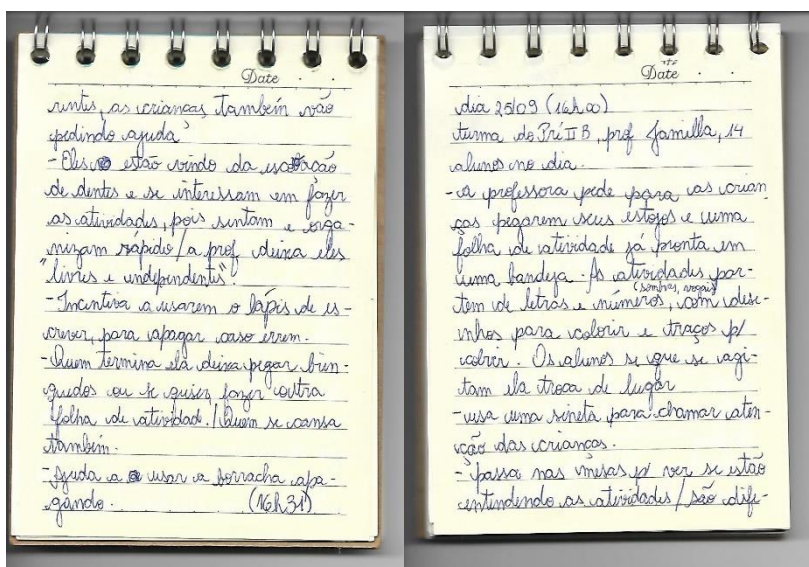 Date
rentes, as crianças também vão
pedindo ajuda
- Eles estão vindo da escovação
de dentes e se interessam em fazer
as atividades, pois sentam e orga-
nizam rápido/a prof deixa eles
"livres e independentes".
- Incentiva a usarem o lápis de es-
crever, para apagar caso errem.
- Quem termina ela deixa pegar brin-
quedos ou se quiser fazer outra
folha de atividade./Quem se cansa
também.
- Ajuda a usar a borracha apa-
gando. (16h31)
Date
dia 25/09 (16h00)
turma do Pré II B, prof Jamilla, 14
alunos no dia.
- A professora pede para as crian
ças pegarem seus estojos e uma
folha de atividade já pronta em
uma bandeja. As atividades par-
tem de letras e números, com dese-
nhos para colorir e traços p/
cobrir. Os alunos se que se agi-
tam ela troca de lugar
- usa uma sineta para chamar aten-
ção das crianças.
- passa nas mesas p/ ver se estão
entendendo as atividades/são dife-